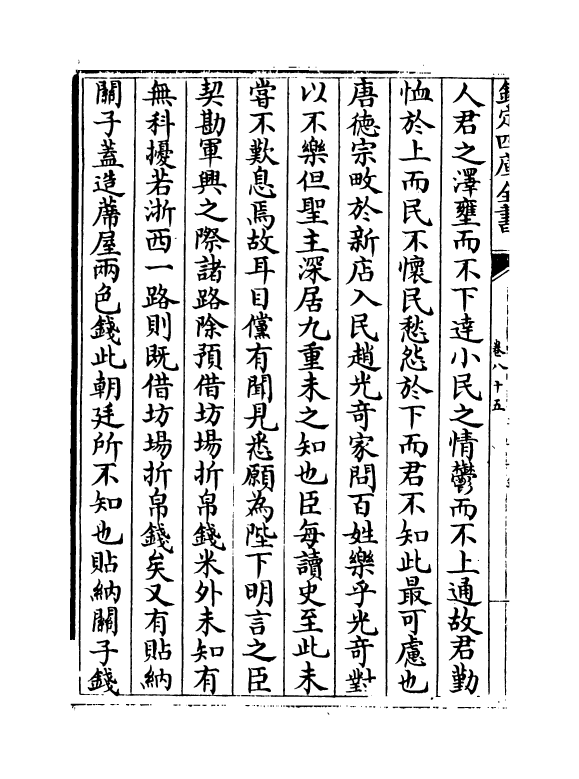 欽定四庫全書
卷八十五
人君之澤壅而不下達小民之情鬱而不上通故君勤
恤於上而民不懷民愁怨於下而君不知此最可慮也
唐徳宗畋於新店入民趙光竒家問百姓樂乎光竒對
以不樂但聖主深居九重未之知也臣每讀史至此未
嘗不歎息焉故耳目儻有聞見悉願為陛下明言之臣
契勘軍興之際諸路除預借坊場折帛錢米外未知有
無科擾若浙西一路則既借坊場折帛錢矣又有貼納
關子葢造蓆屋兩色錢此朝廷所不知也貼納關子錢